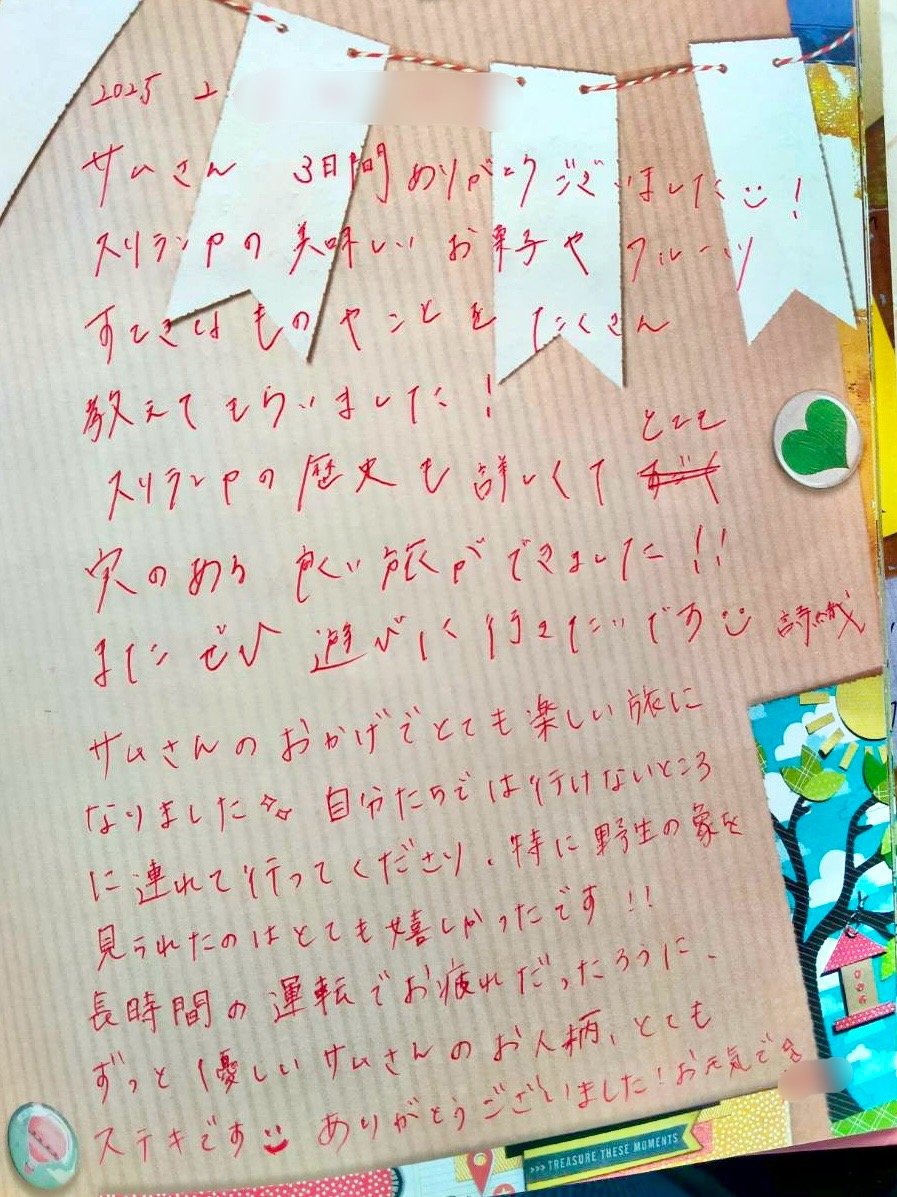 2025 2
サムさん 3日間ありがとうございました!
スリランカの美味しいお菓子やフルーツ
すてきなものやことをたくさん
教えてもらいました!
とても
スリランカの歴史も詳しくて
実のある良い旅ができました!!
またぜひ遊びに行きたいです 詩織
サムさんのおかげでとても楽しい旅に
なりました 自分たちでは行けないところ
に連れて行ってくださり、特に野生の象を
見られたのはとても嬉しかったです!!
長時間の運転でお疲れだったろうに、
ずっと優しいサムさんのお人柄、とても
ステキです ありがとうございました!お元気で
>>> TREASURE THESE MOMENTS